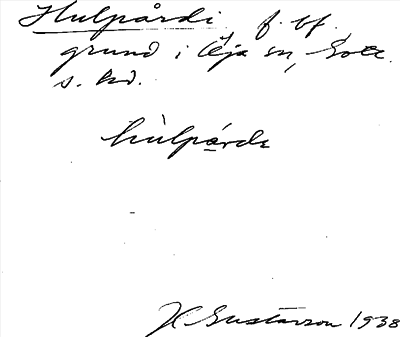 Hulpårdi f. bf.
grund i Öja sn, Gotl.
s. hd.
hùlpárdɛ
H Gustavson 1938